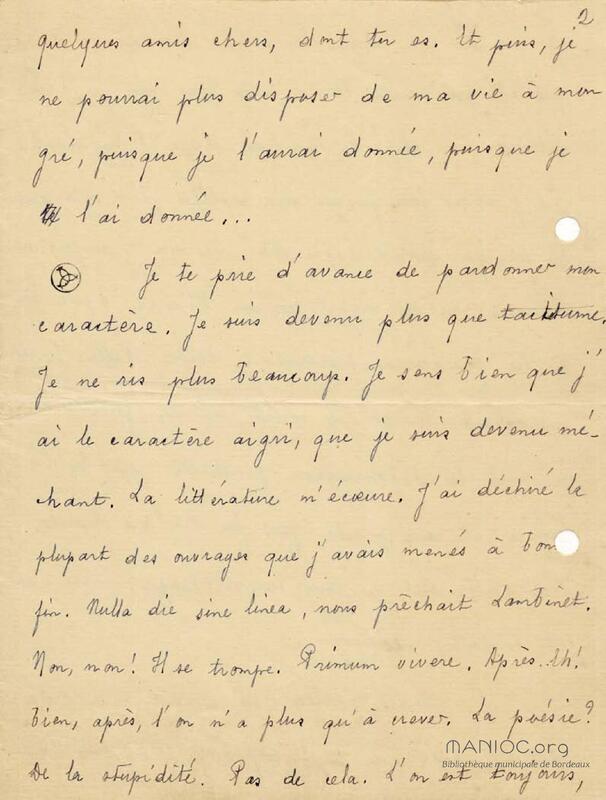 2
quelques amis chers, dont tu es. Et puis, je
ne pourrai plus disposer de ma vie à mon
gré, puisque je l'aurai donnée, puisque je
l'ai donnée...
Je te prie d'avance de pardonner mon
caractère. Je suis devenu plus que taciturne.
Je ne ris plus beaucoup. Je sens bien que j'
ai le caractère aigri, que je suis devenu mé-
chant. La littérature m'écœure. J'ai déchiré la
plupart des ouvrages que j'avais menés à bonne
fin. Nulla die sine linea, nous prêchait Lambinet.
Non, non! Il se trompe. Primum vivere. Après. Eh!
bien, après, l'on n'a plus qu'à crever. La poésie?
De la stupidité. Pas de cela. L'on est toujours,
MANIOC.org
Bibliothèque municipale de Bordeaux